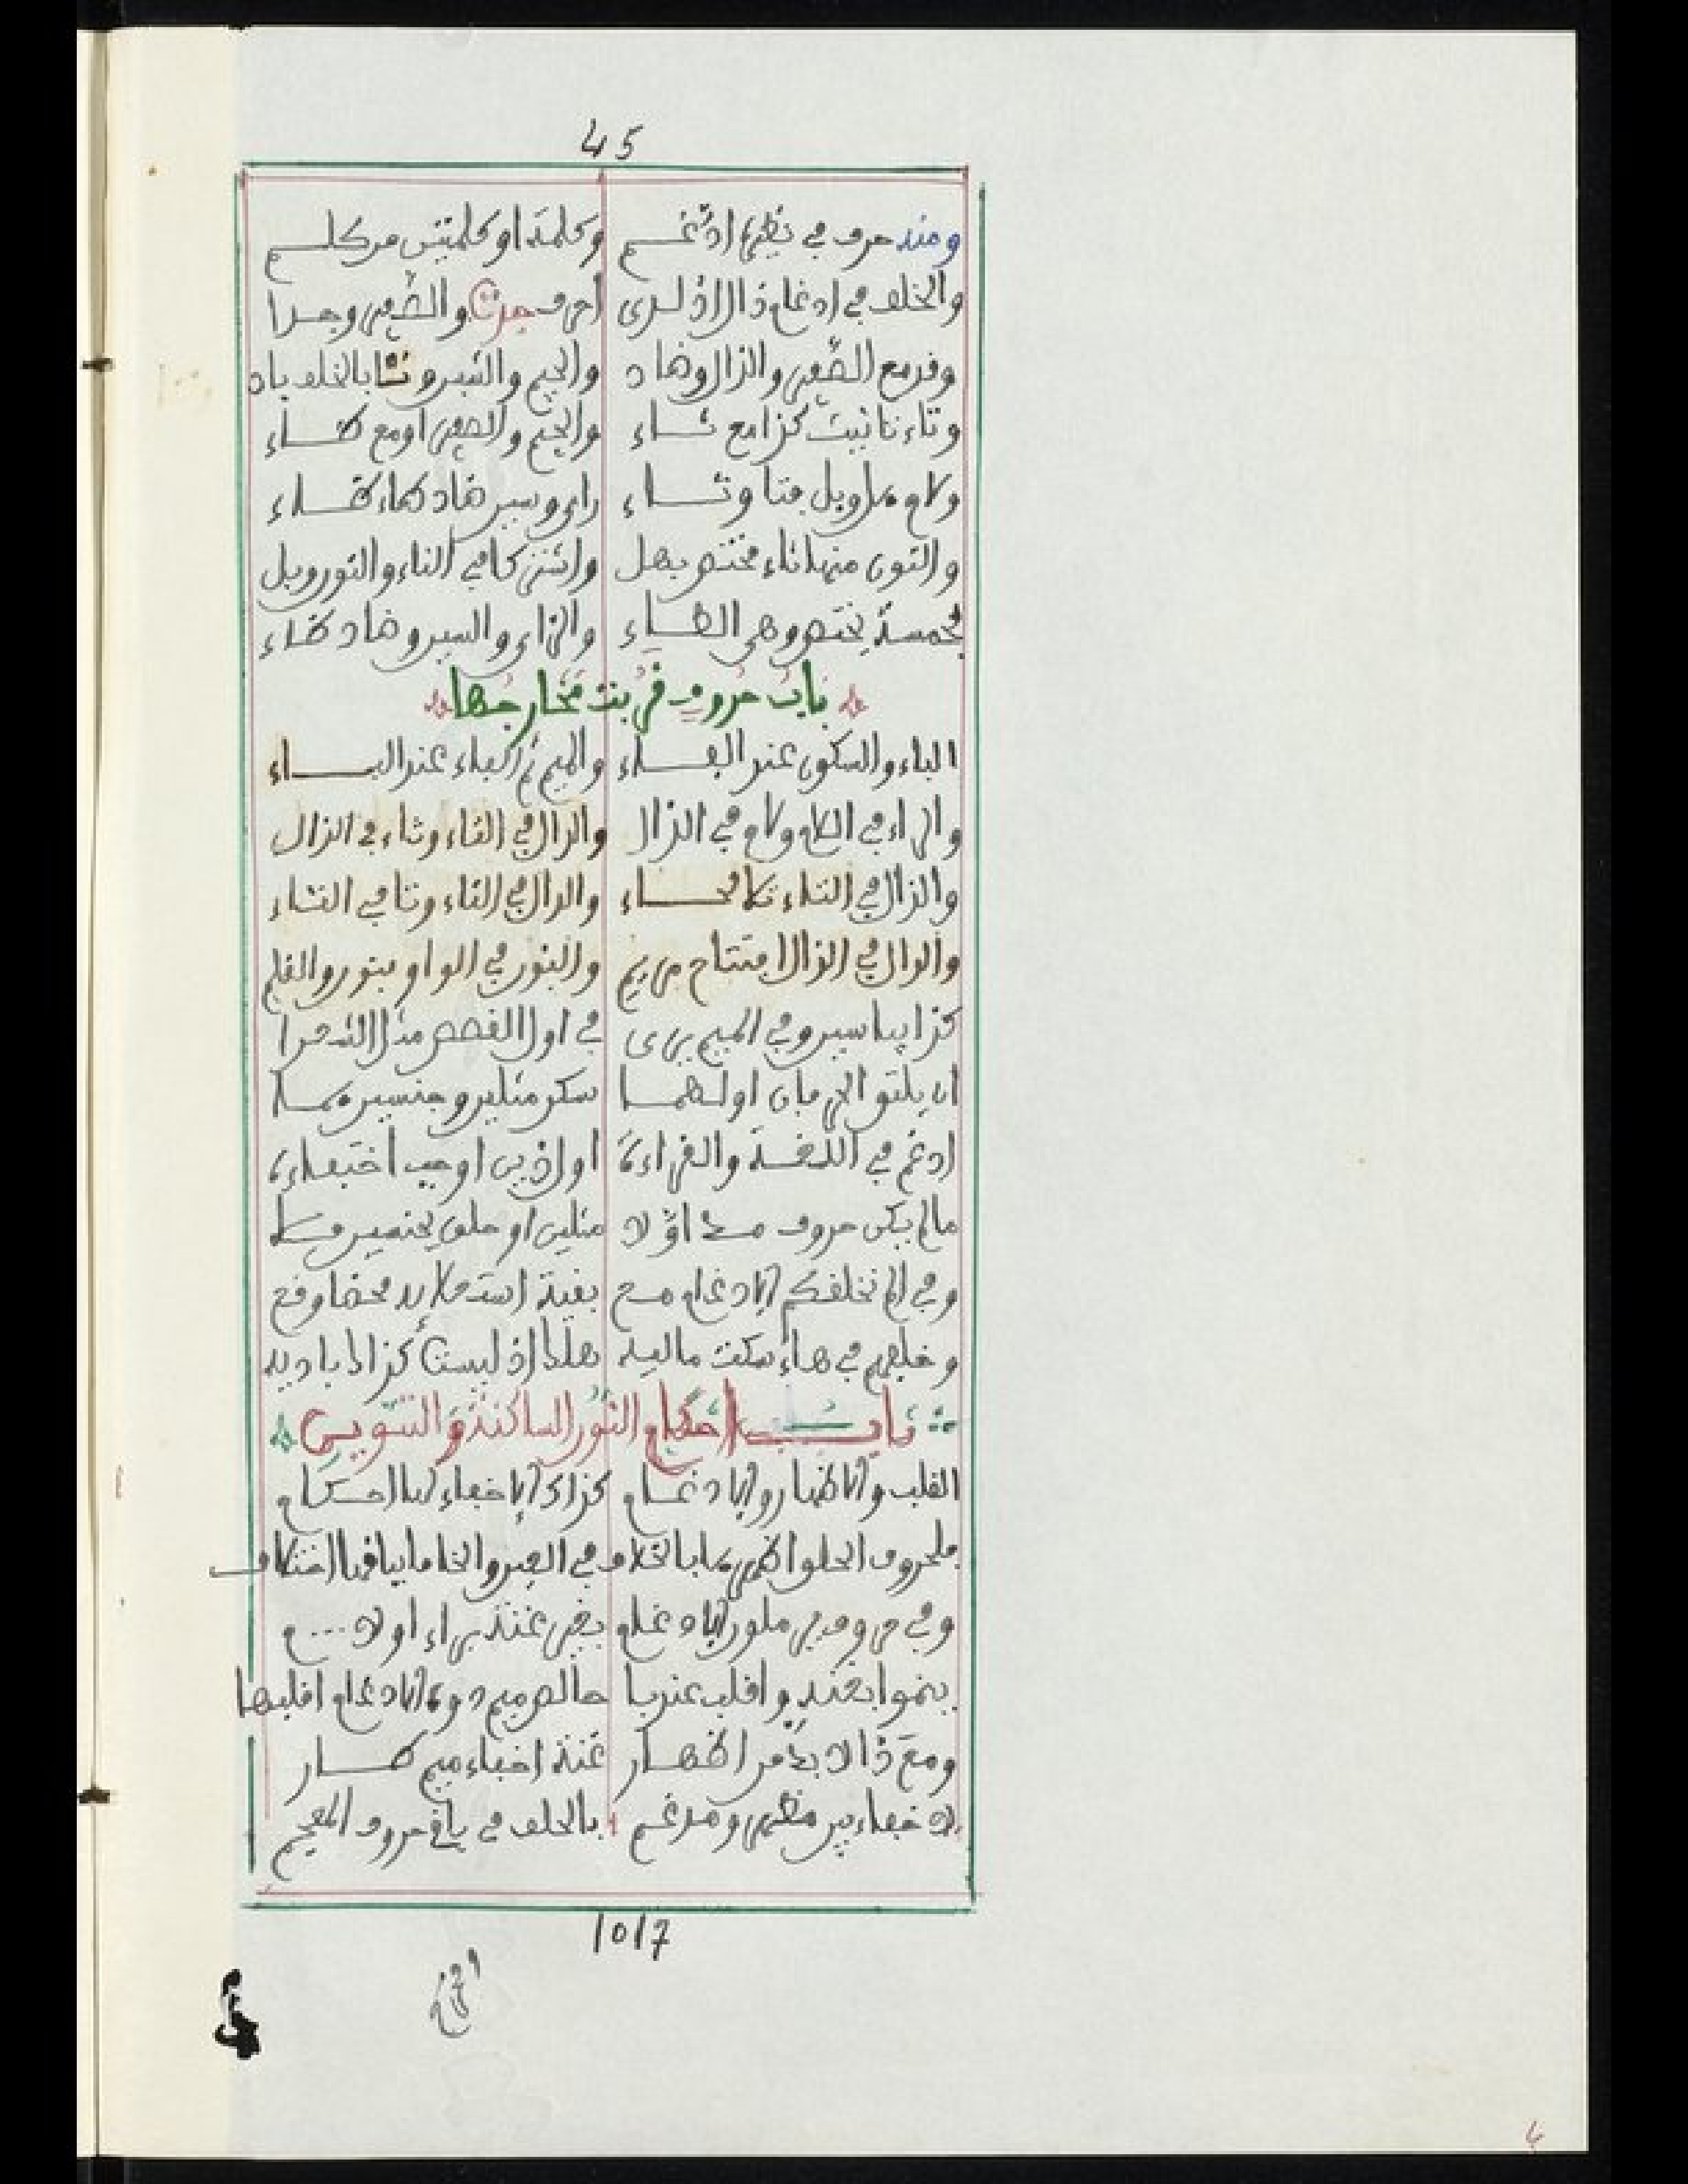 45
ومنه حرف في نظيره ادغم وكلمة او كلمتين من كلم
والخلف في ادغام ذال اذ لدى احرف جدت والصفير وجدا
وقد مع الصفير والذال وضاد والجيم والشين وشا بالخلف باد
وتاء تانيث كذا مع ثاء والجيم والصفير او مع ظاء
ولام هل وبل فتا وثاء زاي وسين ضاد طاء ظاء
والنون منها ثاء مختص بهل واشتركا في التاء والنون وبل
بخمسة يختص وهي الطاء والزاي والسين وضاد ظاء
باب حروف قربت مخارجها
الباء والسكون عند الفاء والميم ثم الفاء عند الباء
والراء في اللام ولام في الذال والدال في الثاء وثاء في الذال
والذال في التاء والدال في الثاء وتا في الثاء
والدال في الذال افتتاح مريم والنون في الواو بنون والقلم
كذا بياسين وفي الميم يرى في اول القصص
ان يلتق الحرفان اولهما سكن مثلين وجنسين هما
ادغم في اللغة والقراءة اولاذين اوجب اختفاءة
مالم يكن حروف مد اولا مثلين او حلق
وفي الم نخلقكم الادغام صح بقية استعلا محضا وضح
وخلفهم في هاء سكت ماليه هلك اذ ليست كذاك باديه
باب احكام النون الساكنة والتنوين
القلب والاظهار والادغام كذاك الاخفاء لها احكام
فلحروف الحلق اظهرها بالخلاف في الغين والخا ما بباقيها اختلاف
وفي حروف يرملون الادغام بغير غنة براء او لا ... م
بنموا بغنة واقلب عند با خالص ميم دون الادغام اقلبها
ومع ذا لا بد من اظهار غنة اخفاء ميم طار
لاخفاء بين مظهر ومدغم بالخلف في باقي حروف المعجم
1017